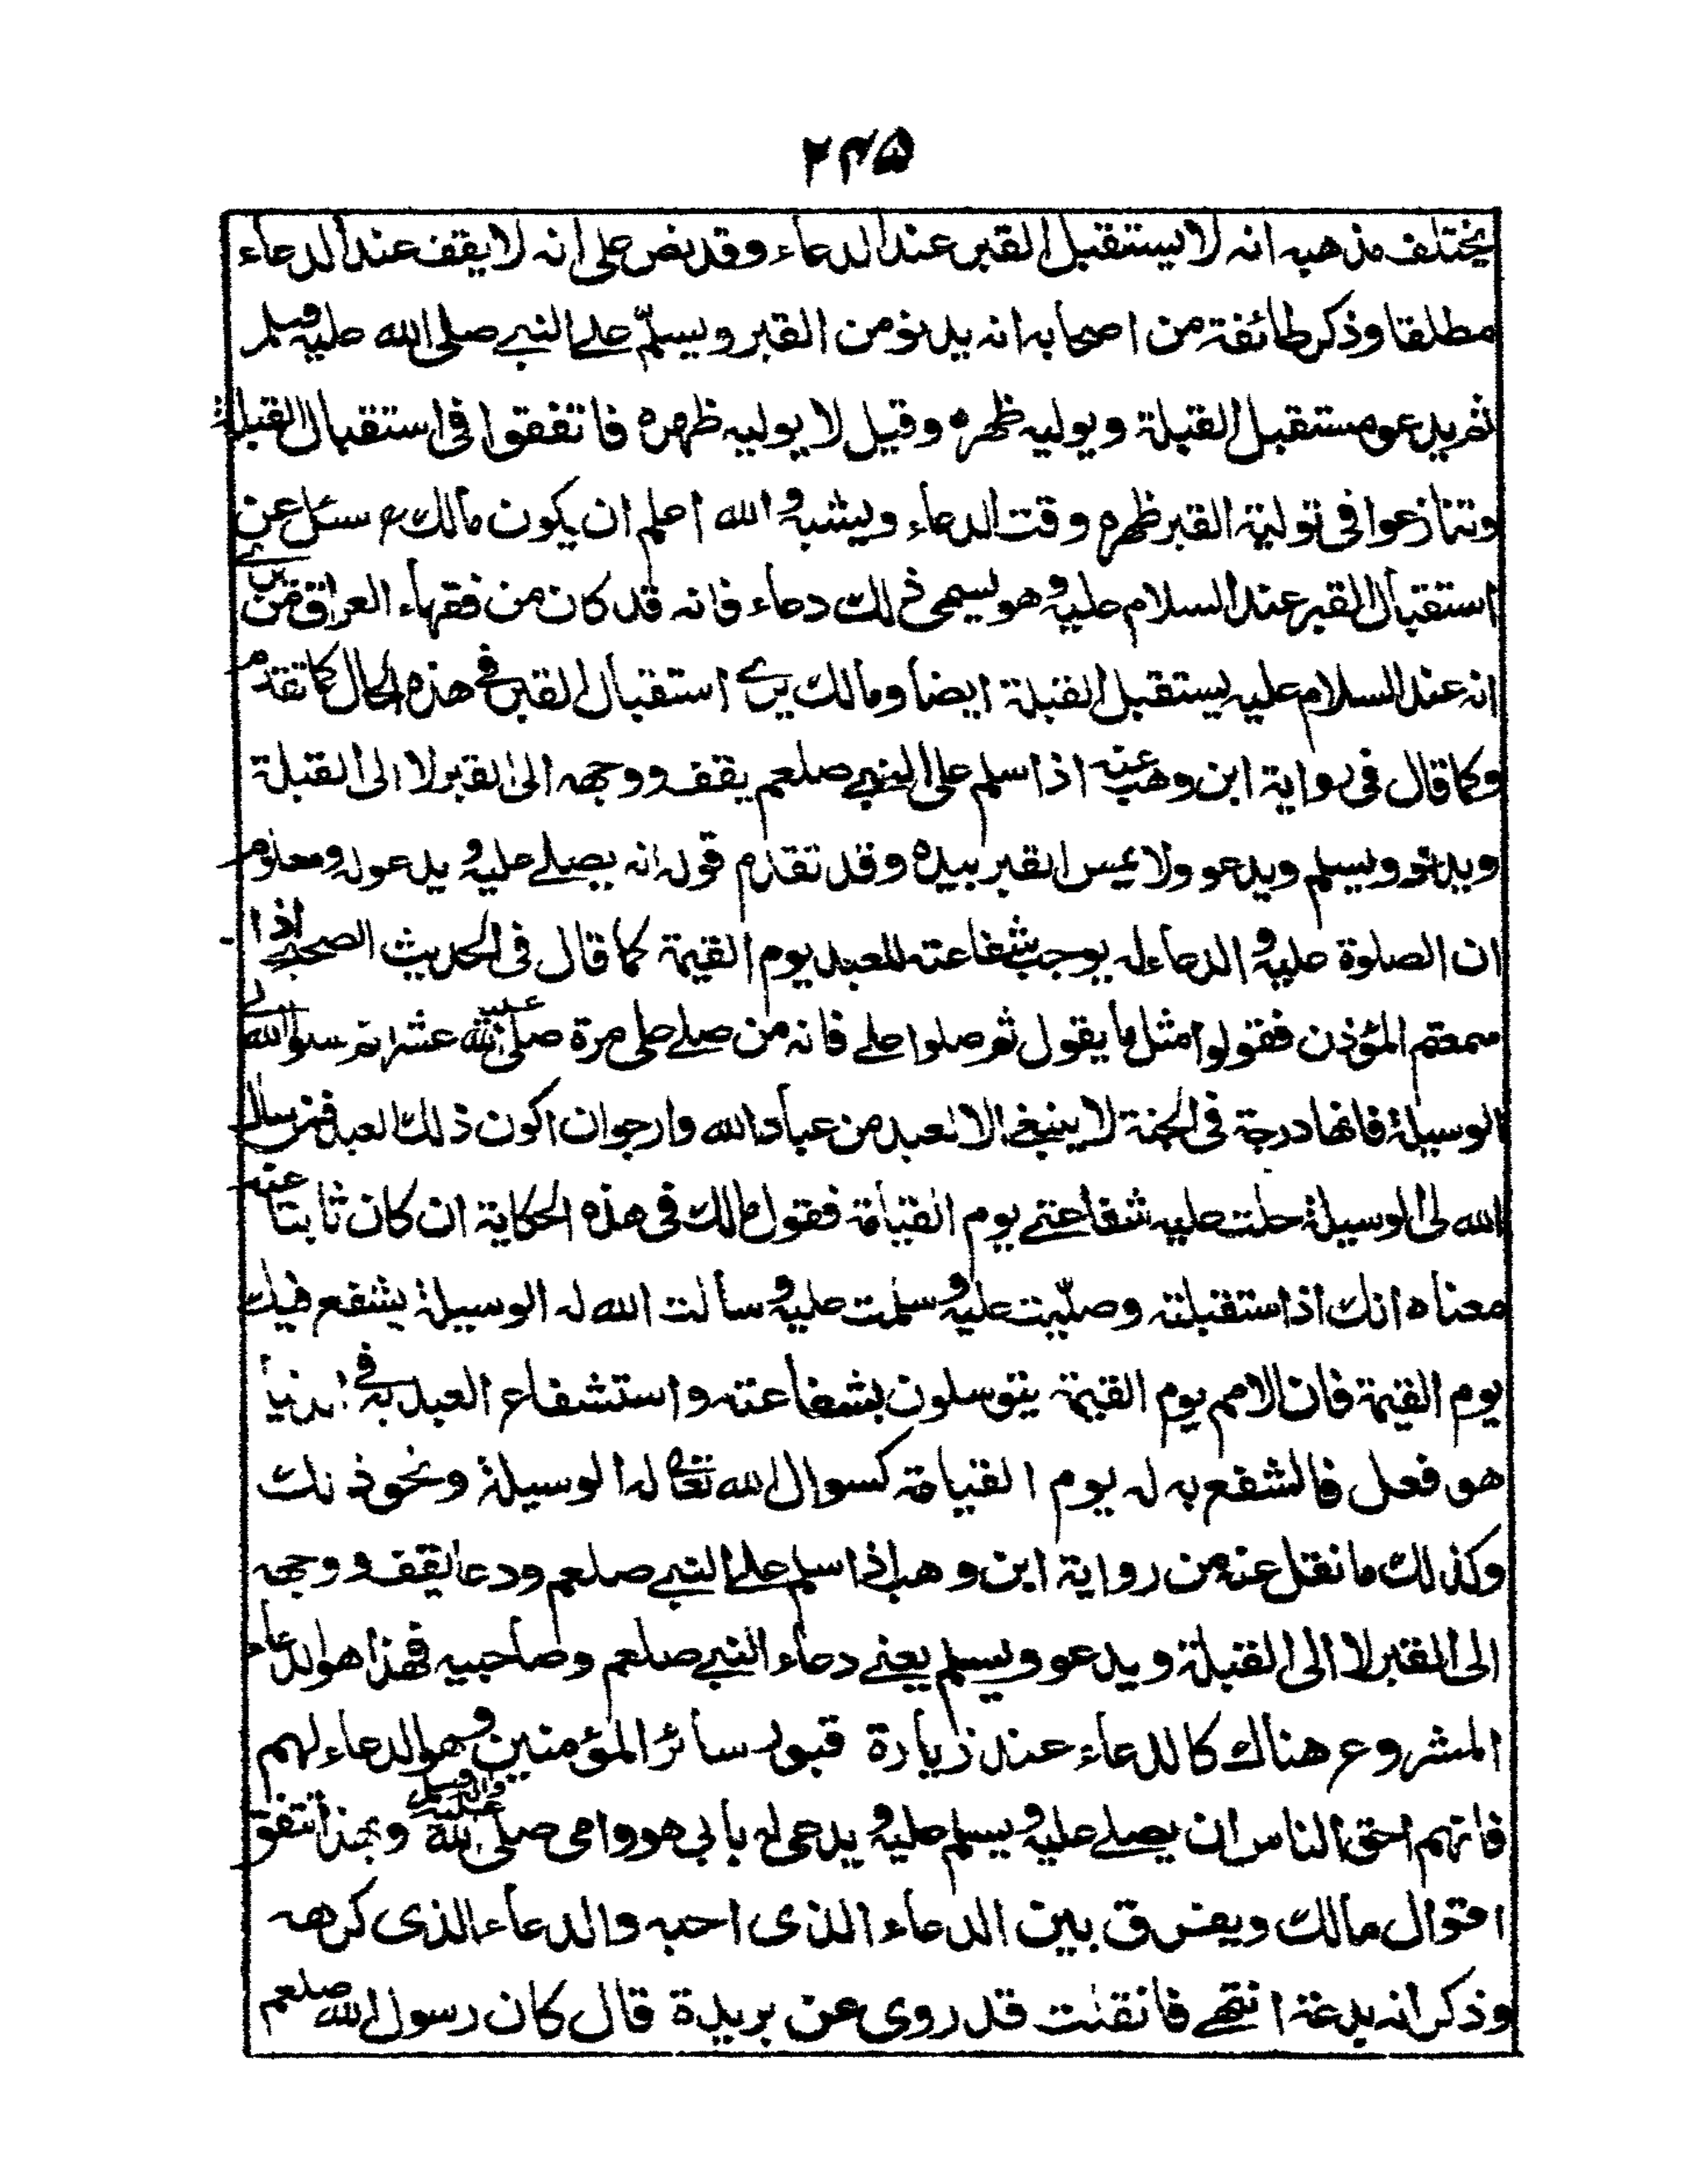 ۲۴۵
يختلف مذهبه انه لا يستقبل القبر عند الدعاء وقد نص على انه لا يقف عند الدعاء
مطلقا وذكر طائفة من اصحابه انه يدنو من القبر ويسلّم على النبي صلى الله عليه وسلم
ثم يدعو مستقبل القبلة ويوليه ظهره وقيل لا يوليه ظهره فاتفقوا في استقبال القبلة
وتنازعوا في تولية القبر ظهره وقت الدعاء ويشبه والله اعلم ان يكون مالك سئل عن
استقبال القبر عند السلام عليه وهو يسمى ذلك دعاء فانه قد كان من فقهاء العراق من يرى
انه عند السلام عليه يستقبل القبلة ايضا ومالك يرى استقبال القبر في هذه الحال كما تقدم
وكما قال في رواية ابن وهب عنه اذا سلم على النبي صلعم يقف ووجهه الى القبر لا الى القبلة
ويدنو ويسلم ويدعو ولا يمس القبر بيده وقد تقدم قوله انه يصلي عليه و يدعو له ومعلوم
ان الصلوة عليه و الدعاء له يوجب شفاعته للعبد يوم القيمة كما قال في الحديث الصحيح اذا
سمعتم المؤذن فقولوا مثل ما يقول ثم صلوا علي فانه من صلى علي مرة صلى الله عليه عشرا ثم سلوا الله لي
الوسيلة فانها درجة في الجنة لا ينبغي الا لعبد من عباد الله وارجو ان اكون ذلك العبد فمن سال
الله لي الوسيلة حلت عليه شفاعتي يوم القيامة فقول مالك في هذه الحكاية ان كان ثابتا عنه
معناه انك اذا استقبلته وصلّيت عليه و سلمت عليه و سالت الله له الوسيلة يشفع فيك
يوم القيمة فان الامم يوم القيمة يتوسلون بشفاعته واستشفاع العبد به في الدنيا
هو فعل فالشفع به له يوم القيامة كسوال الله تعالى له الوسيلة ونحو ذلك
وكذلك ما نقل عنه من رواية ابن وهب اذا سلم على النبي صلعم ودعا يقف ووجهه
الى القبر لا الى القبلة ويدعو ويسلم يعني دعاء النبي صلعم وصاحبيه فهذا هو الدعاء
المشروع هناك كالدعاء عند زيارة قبور سائر المؤمنين وهو الدعاء لهم
فانهم احق الناس ان يصلي عليه و يسلم عليه و يدعى له بابي هو وامي صلى الله عليه واله وسلم وبهذا تتفق
اقوال مالك ويفرق بين الدعاء الذي احبه والدعاء الذي كرهه
وذكر انه بدعة انتهى فانقلت قد روى عن بريدة قال كان رسول الله صلعم